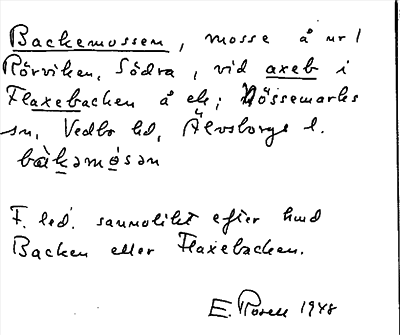 Backemossen, mosse å nr 1
Rörviken, Södra, vid axeb i
Flaxebacken å ek; Nössemarks
sn, Vedbo hd, Älvsborgs l.
bàkəmósən
F. led. sannolikt efter hmd
Backen eller Flaxebacken.
E. Rosell 1948